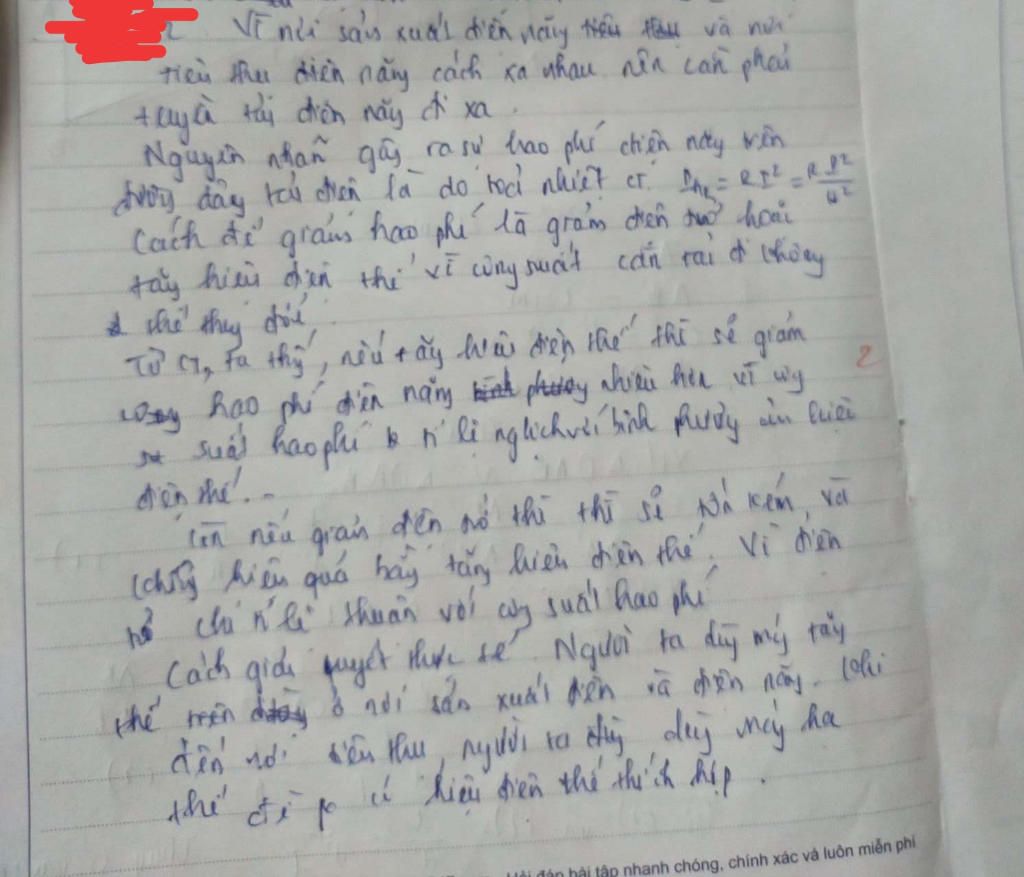 2 Vì nơi sản xuất điện năng tiêu thu và nơi
tiêu thu điện năng cách xa nhau nên cần phải
truyền tải điện năng đi xa.
Nguyên nhân gây ra sự hao phí điện năng trên
đường dây tải điện là do toả nhiệt ct. P_hp = RI² = R P²/U²
Cách để giảm hao phí là giảm điện trở hoặc
tăng hiệu điện thế vì công suất cần tải đi không
thể thay đổi,
Từ CT, ta thấy, nếu tăng hiệu điện thế thì sẽ giảm 2
hao phí điện năng bình phương nhiều hơn vì công
suất hao phí tỉ lệ nghịch với bình phương của hiệu
điện thế...
Còn nếu giảm điện trở thì thì sẽ tốn kém, và
không hiệu quả bằng tăng hiệu điện thế. Vì điện
trở chỉ tỉ lệ thuận với công suất hao phí
Cách giải quyết thực tế. Người ta dùng máy tăng
thế trên đường ở nơi sản xuất điện và điện năng. Khi
đến nơi tiêu thu, người ta dùng dùng máy hạ
thế để có hiệu điện thế thích hợp.
đáp bài tập nhanh chóng, chính xác và luôn miễn phí